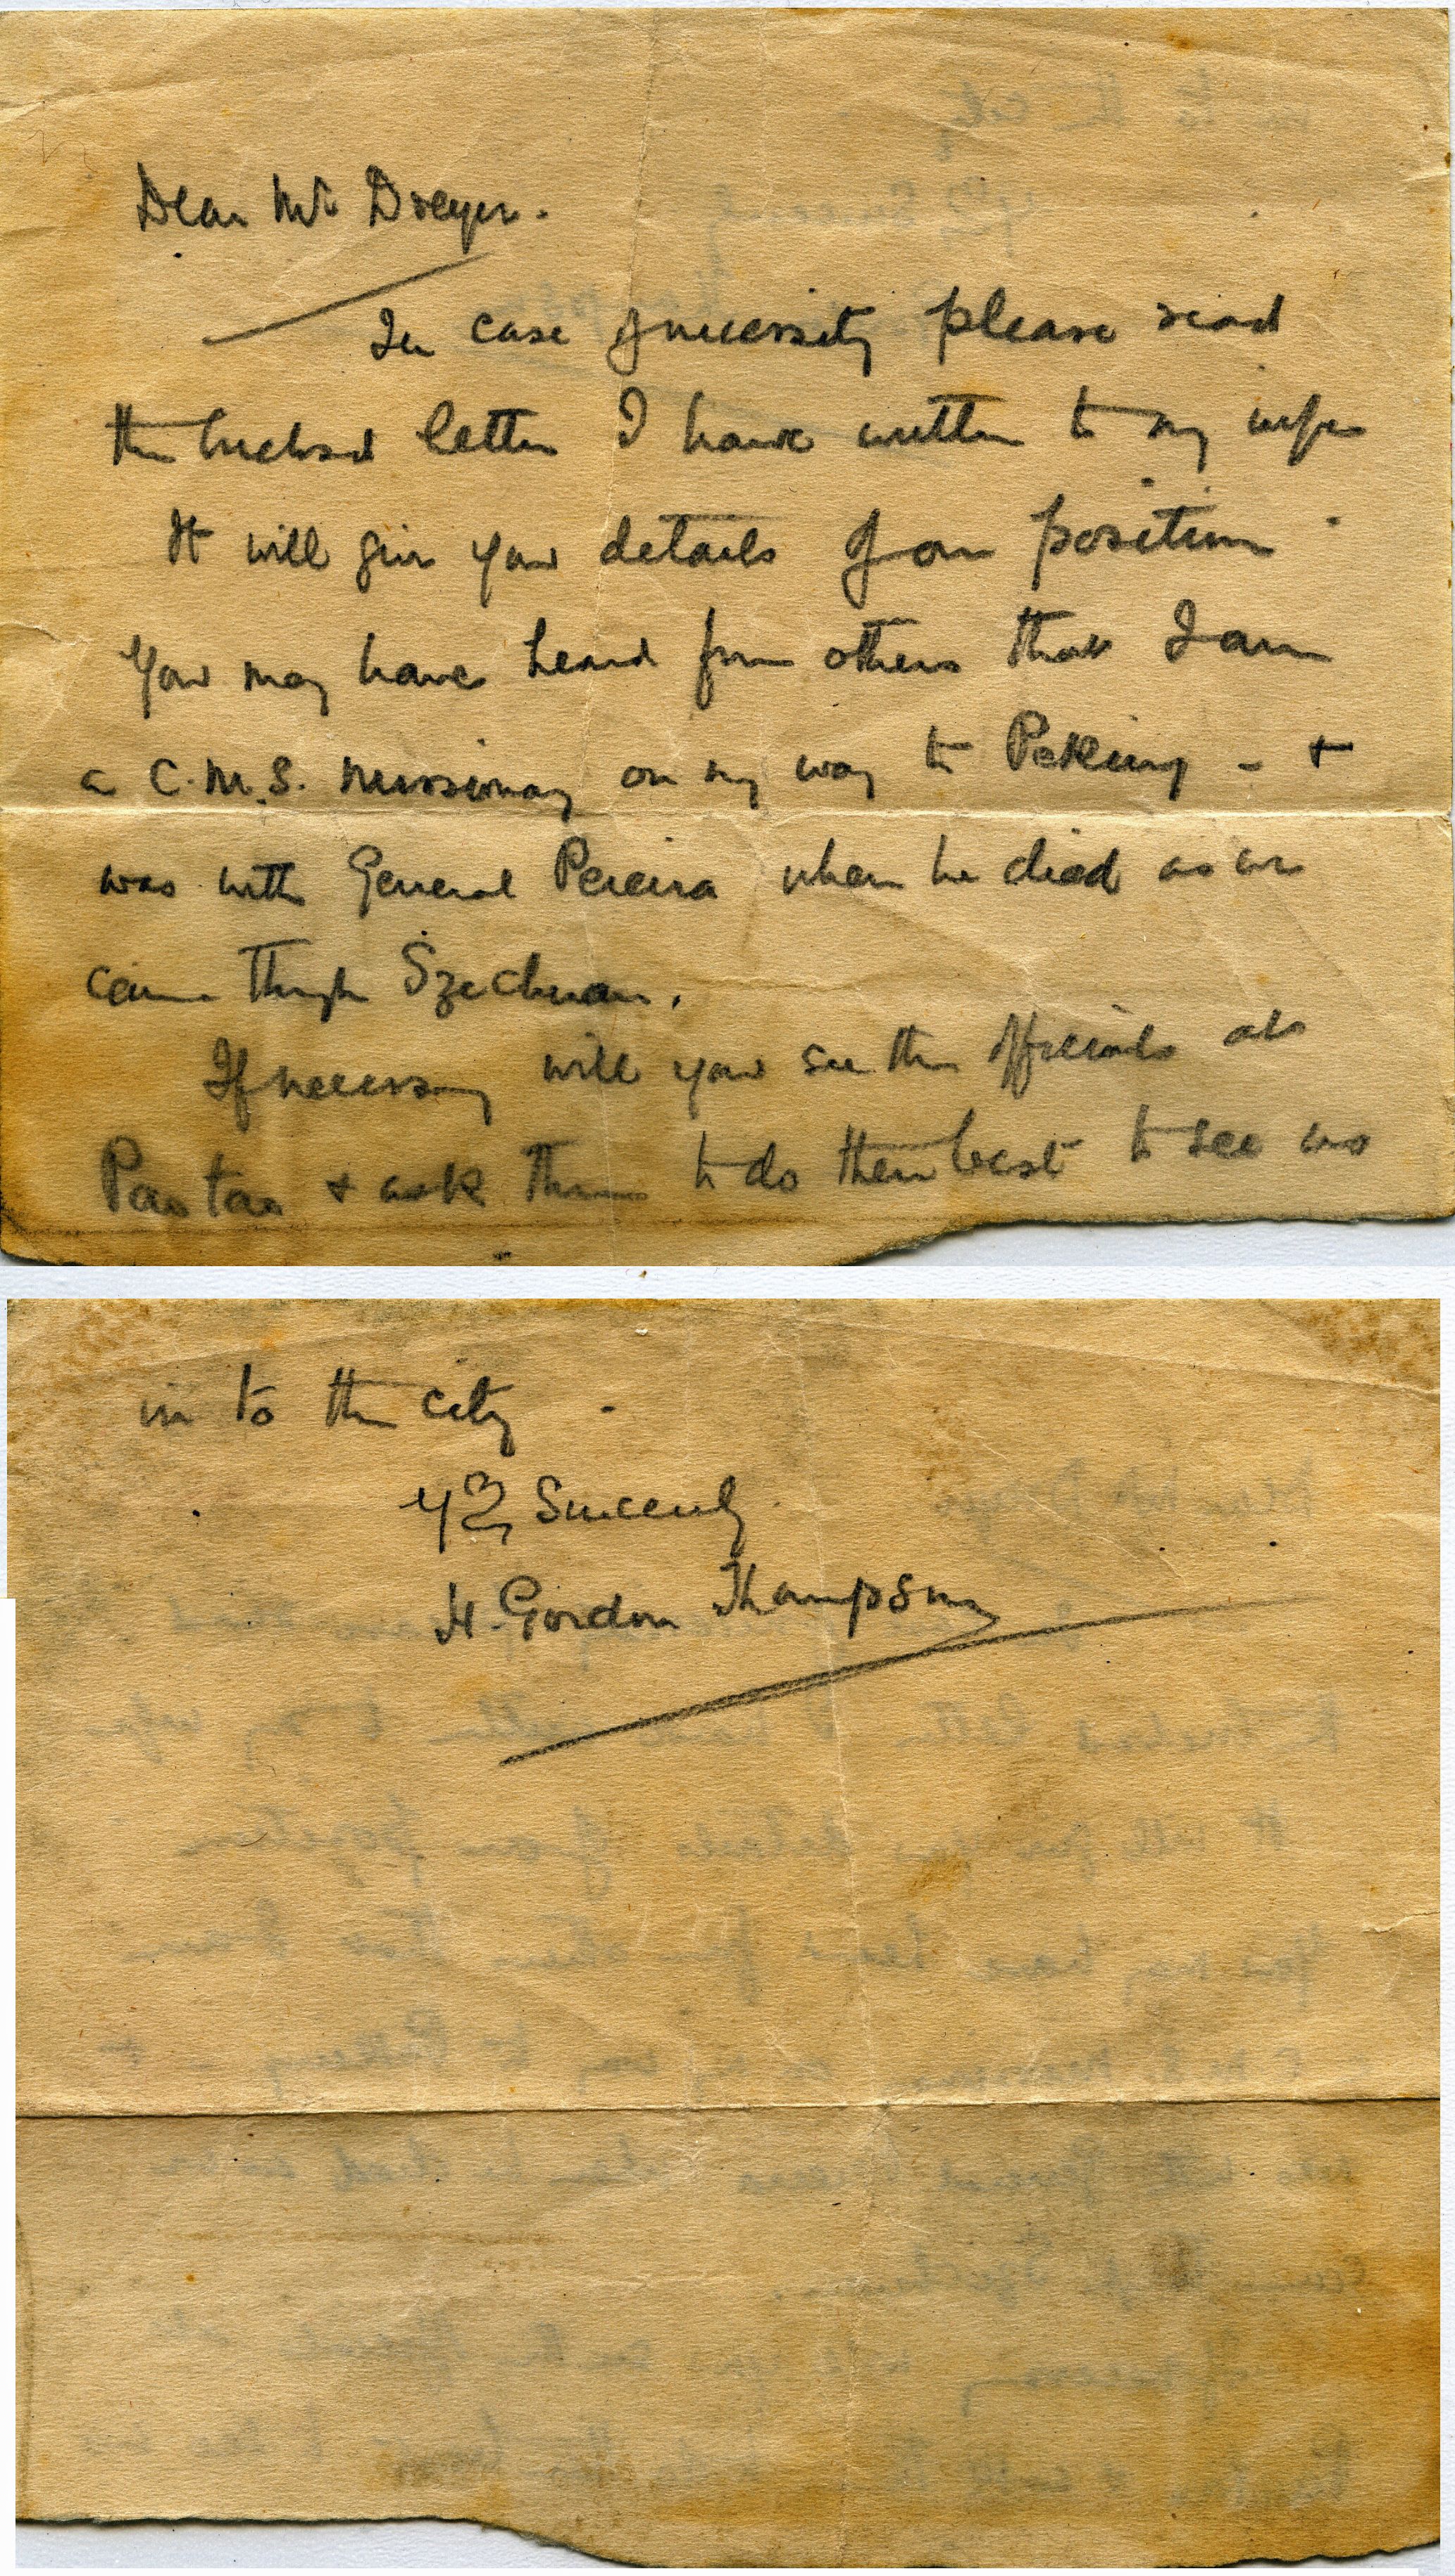 Dear Mr Dreyer.
In case of necessity please send
the enclosed letter I have written to my wife
It will give you details of our position.
You may have heard from others that I am
a C.M.S. missionary on my way to Peking - +
was with General Pereira when he died as we
came through Szechuan.
If necessary will you see the officials at
Paotao + ask them to do their best to see us
in to the city.
Yrs Sincerely
H. Gordon Thompson